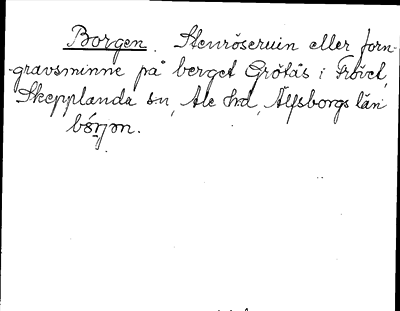 Borgen. Stenröseruin eller forn-
gravsminne på berget Grötås i Frövet,
Skepplanda sn, Ale hd, Älfsborgs län